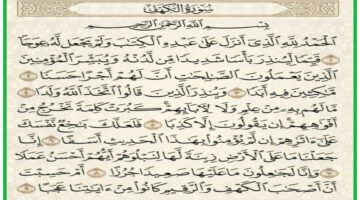 سُورَةُ الكَهْفِ
بِسْمِ اللَّهِ الرَّحْمَٰنِ الرَّحِيمِ
الْحَمْدُ لِلَّهِ الَّذِي أَنزَلَ عَلَىٰ عَبْدِهِ الْكِتَابَ وَلَمْ يَجْعَل لَّهُ عِوَجًا ۜ ١
قَيِّمًا لِّيُنذِرَ بَأْسًا شَدِيدًا مِّن لَّدُنْهُ وَيُبَشِّرَ الْمُؤْمِنِينَ
الَّذِينَ يَعْمَلُونَ الصَّالِحَاتِ أَنَّ لَهُمْ أَجْرًا حَسَنًا ٢
مَّاكِثِينَ فِيهِ أَبَدًا ٣ وَيُنذِرَ الَّذِينَ قَالُوا اتَّخَذَ اللَّهُ وَلَدًا ٤
مَّا لَهُم بِهِ مِنْ عِلْمٍ وَلَا لِآبَائِهِمْ ۚ كَبُرَتْ كَلِمَةً تَخْرُجُ مِنْ
أَفْوَاهِهِمْ ۚ إِن يَقُولُونَ إِلَّا كَذِبًا ٥ فَلَعَلَّكَ بَاخِعٌ نَّفْسَكَ
عَلَىٰ آثَارِهِمْ إِن لَّمْ يُؤْمِنُوا بِهَٰذَا الْحَدِيثِ أَسَفًا ٦ إِنَّا
جَعَلْنَا مَا عَلَى الْأَرْضِ زِينَةً لَّهَا لِنَبْلُوَهُمْ أَيُّهُمْ أَحْسَنُ عَمَلًا ٧
وَإِنَّا لَجَاعِلُونَ مَا عَلَيْهَا صَعِيدًا جُرُزًا ٨ أَمْ حَسِبْتَ
أَنَّ أَصْحَابَ الْكَهْفِ وَالرَّقِيمِ كَانُوا مِنْ آيَاتِنَا عَجَبًا ٩